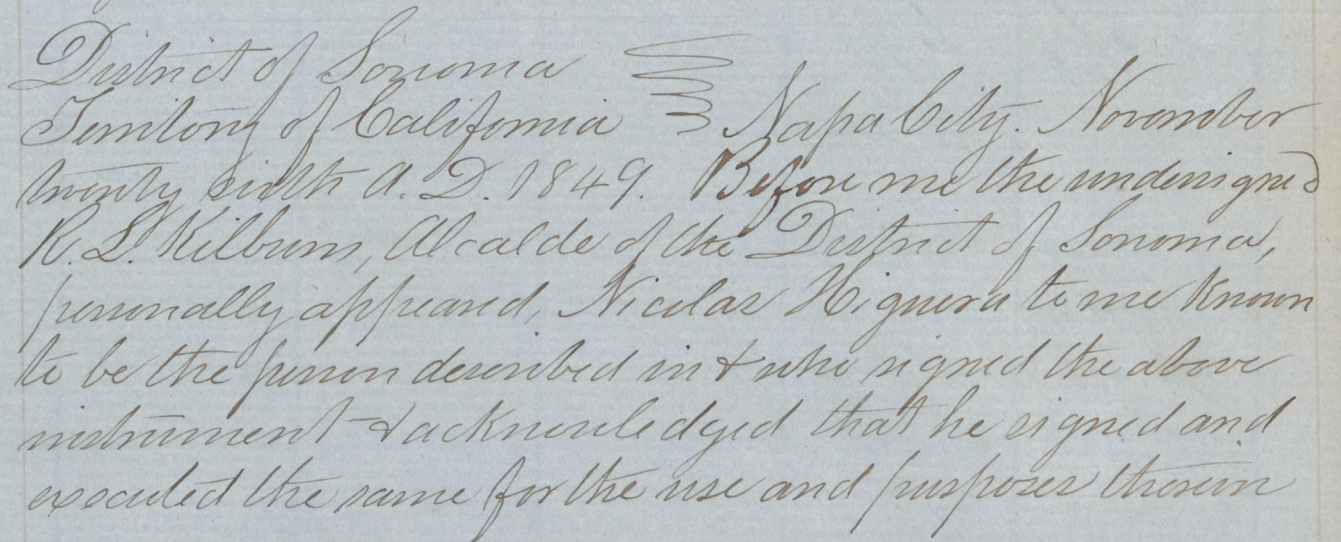 District of Sonoma
Territory of California Napa City. November
twenty sixth A.D. 1849. Before me the undersigned
R. L. Kilburn, Alcalde of the District of Sonoma,
personally appeared, Nicolas Higuera to me Known
to be the person described in & who signed the above
instrument & acknowledged that he signed and
executed the same for the use and purposes therein